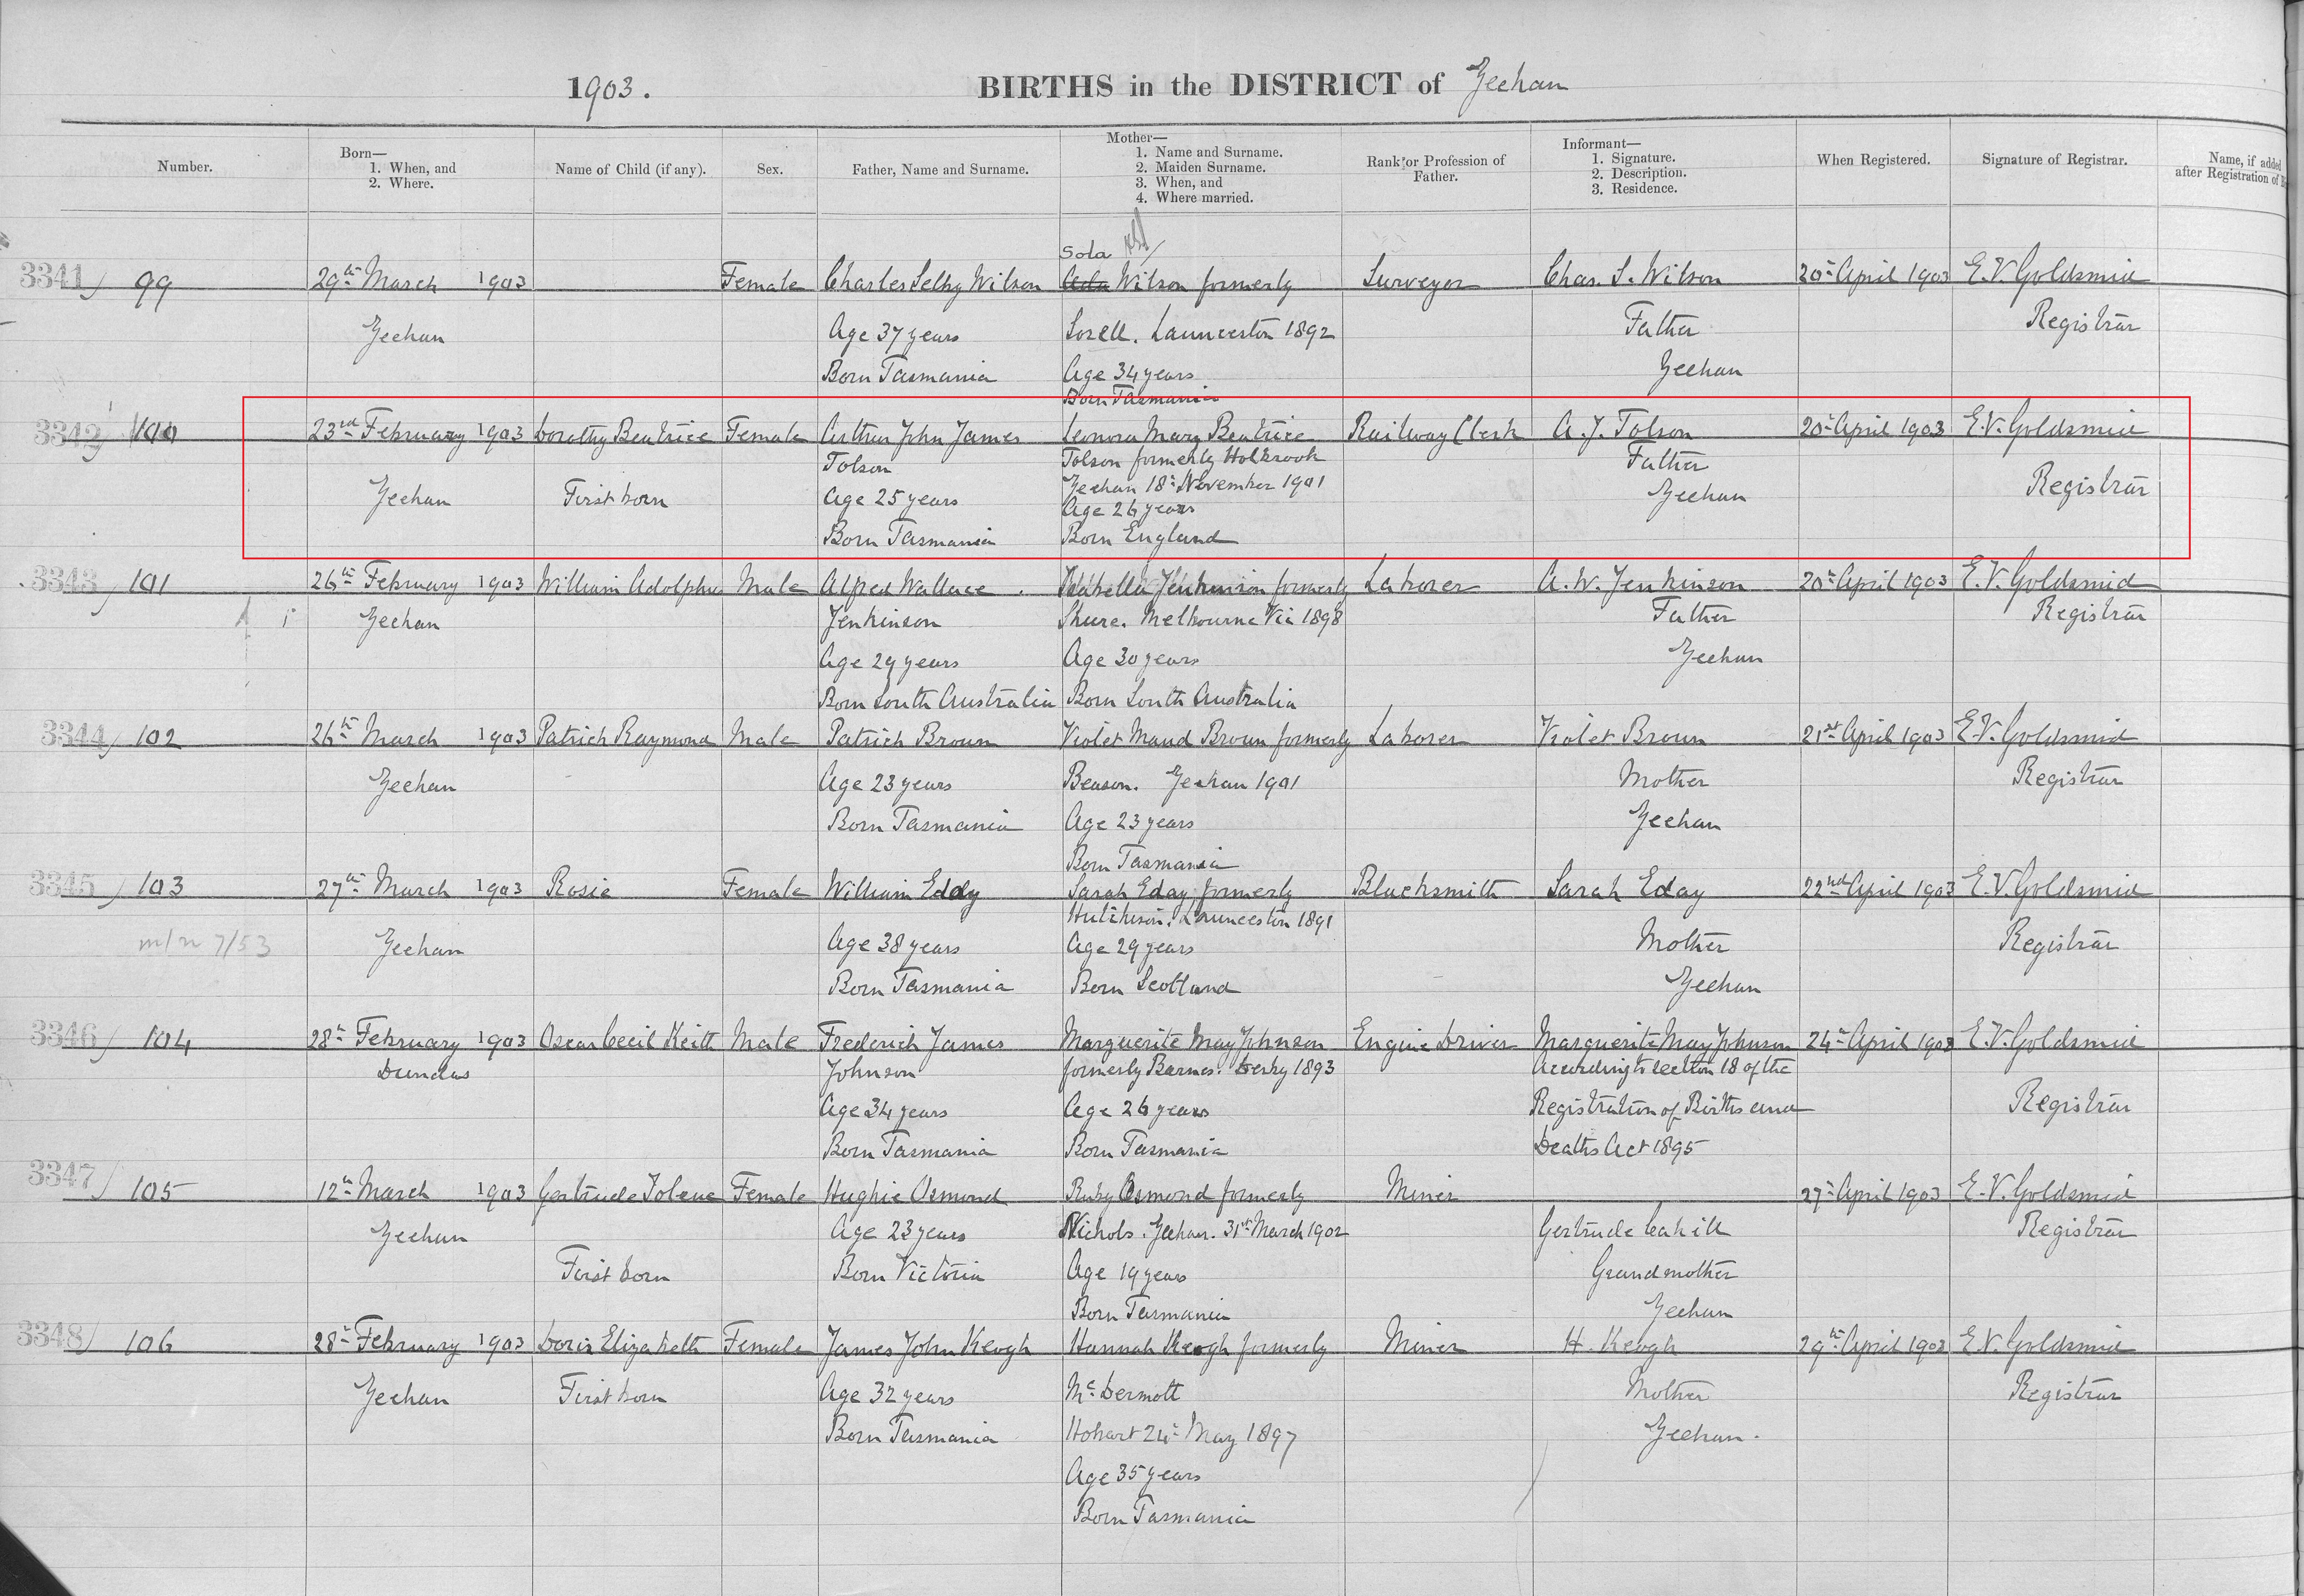 1903.
BIRTHS in the DISTRICT of Zeehan
Number.
Born—
1. When, and
2. Where.
Name of Child (if any).
Sex.
Father, Name and Surname.
Mother—
1. Name and Surname.
2. Maiden Surname.
3. When, and
4. Where married.
Rank or Profession of
Father.
Informant—
1. Signature.
2. Description.
3. Residence.
When Registered.
Signature of Registrar.
Name, if added
after Registration of
Sola
3341 99 29th March 1903 Female Charles Selby Wilson Ada Wilson formerly Surveyor Chas. S. Wilson 20th April 1903 E.V. Goldsmid
Zeehan Age 37 years Sorell. Launceston 1892 Father Registrar
Born Tasmania Age 34 years Zeehan
Born Tasmania
3342 100 23rd February 1903 Dorothy Beatrice Female Arthur John James Leonora Mary Beatrice Railway Clerk A. J. Tolson 20th April 1903 E.V. Goldsmid
Tolson Tolson formerly Holbrook Father
Zeehan First born Age 25 years Zeehan 18th November 1901 Zeehan Registrar
Age 26 years
Born Tasmania Born England
3343 101 26th February 1903 William Adolphus Male Alfred Wallace Isabella Jenkinson formerly Laborer A. W. Jenkinson 20th April 1903 E.V. Goldsmid
Zeehan Jenkinson Melbourne Vic 1898 Father Registrar
Age 29 years Age 30 years Zeehan
Born South Australia Born South Australia
3344 102 26th March 1903 Patrick Raymond Male Patrick Broun Violet Maud Broun formerly Laborer Violet Broun 21st April 1903 E.V. Goldsmid
Zeehan Age 23 years Beason. Zeehan 1901 Mother Registrar
Born Tasmania Age 23 years Zeehan
Born Tasmania
3345 103 27th March 1903 Rosie Female William Eddy Sarah Eday formerly Blacksmith Sarah Eday 22nd April 1903 E.V. Goldsmid
Hutchison. Launceston 1891
m/n 7/53 Zeehan Age 38 years Age 29 years Mother Registrar
Born Tasmania Born Scotland Zeehan
3346 104 28th February 1903 Oscar Cecil Keith Male Frederick James Marguerite May Johnson Engine Driver Marguerite May Johnson 24th April 1903 E.V. Goldsmid
Dundas Johnson formerly Barnes. Derby 1893 According to section 18 of the
Age 34 years Age 26 years Registration of Births and Registrar
Born Tasmania Born Tasmania Deaths Act 1895
3347 105 12th March 1903 Gertrude Female Hughie Osmond Ruby Osmond formerly Miner 27th April 1903 E.V. Goldsmid
Zeehan Age 23 years Nichols. Zeehan. 31st March 1902 Gertrude Cahill Registrar
First born Born Victoria Age 19 years Grandmother
Born Tasmania Zeehan
3348 106 28th February 1903 Doris Elizabeth Female James John Keogh Hannah Keogh formerly Miner H. Keogh 29th April 1903 E.V. Goldsmid
Zeehan First born Age 32 years McDermott Mother Registrar
Born Tasmania Hobart 24th May 1897 Zeehan.
Age 35 years
Born Tasmania